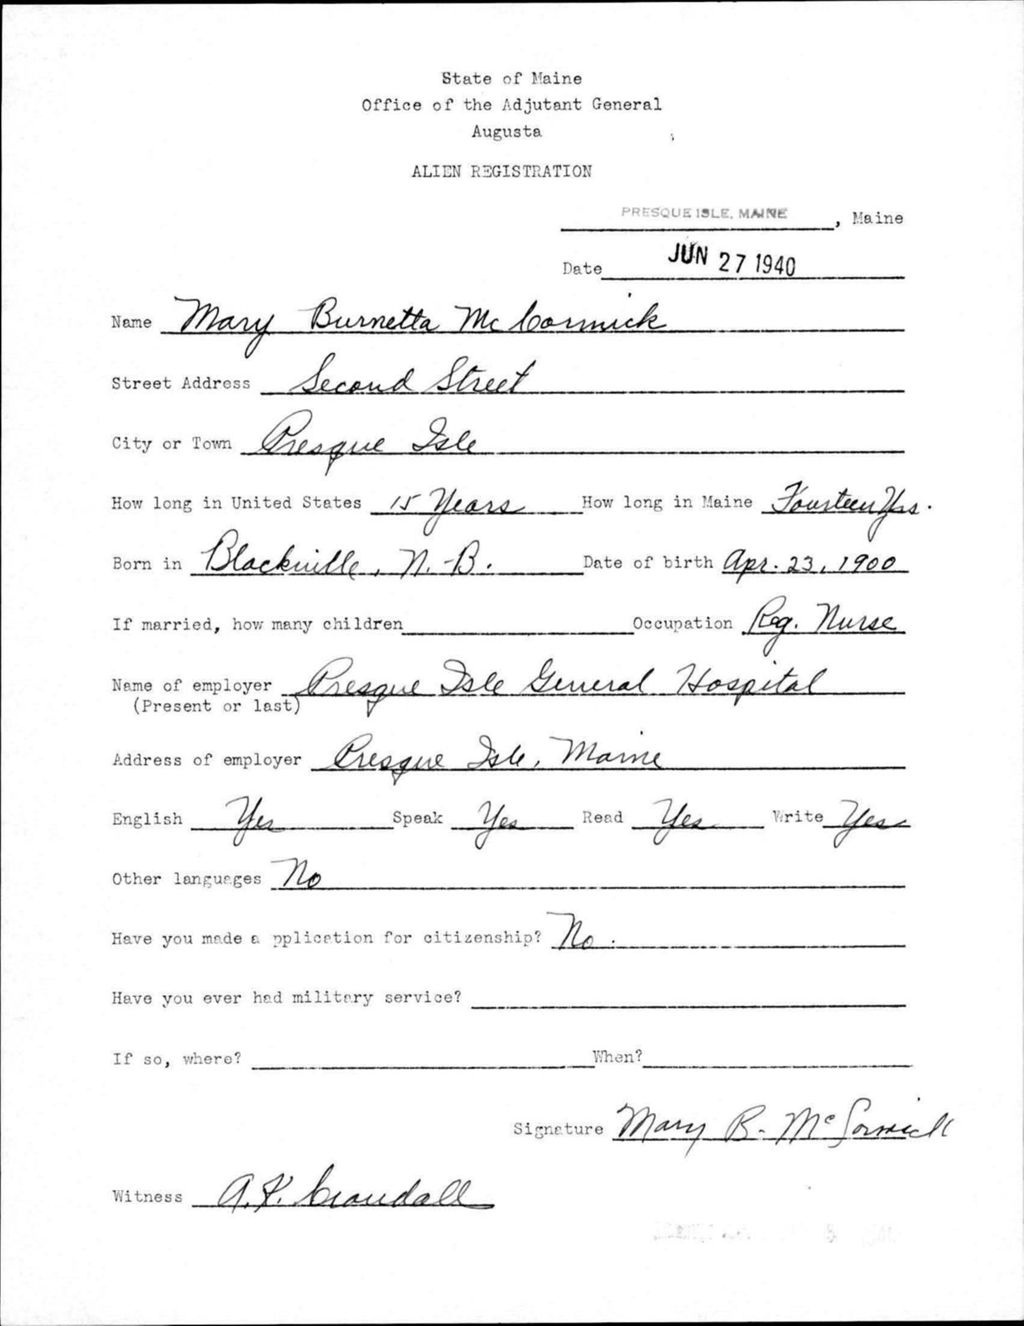 State of Maine
Office of the Adjutant General
Augusta
ALIEN REGISTRATION
PRESQUE ISLE, MAINE, Maine
Date JUN 27 1940
Name Mary Burnetta McCormick
Street Address Second Street
City or Town Presque Isle
How long in United States 15 Years How long in Maine Fourteen Yrs.
Born in Blackville, N. B. Date of birth Apr. 23, 1900
If married, how many children Occupation Reg. Nurse
Name of employer Presque Isle General Hospital
(Present or last)
Address of employer Presque Isle, Maine
English Yes Speak Yes Read Yes Write Yes
Other languages No
Have you made a pplication for citizenship? No.
Have you ever had military service?
If so, where? When?
Signature Mary B. McCormick
Witness A. F. Crandall